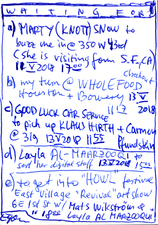 WAITING FOR
a) MARTY (KNOTT) SNOW to
buzz me in @ 350 W 43rd
(she is visiting from S.F., CA)
13 V 2018 17oo
b) my turn @ WHOLE FOOD
Houston + Bowery 13 V 2018
c) GOOD LUCK CAR SERVICE
to pick up KLAUS HIRTH + Carmen
@ 319 13 V 2018 Pfundstein
d) Layla AL-MAARZOOQI to
send her digital stuff 13 V 2018
e) to get into "HOWL" festive
East Village "Revival" art show
6E 1st St w/ Mats Wikström @
Layla AL MAARZOOQI